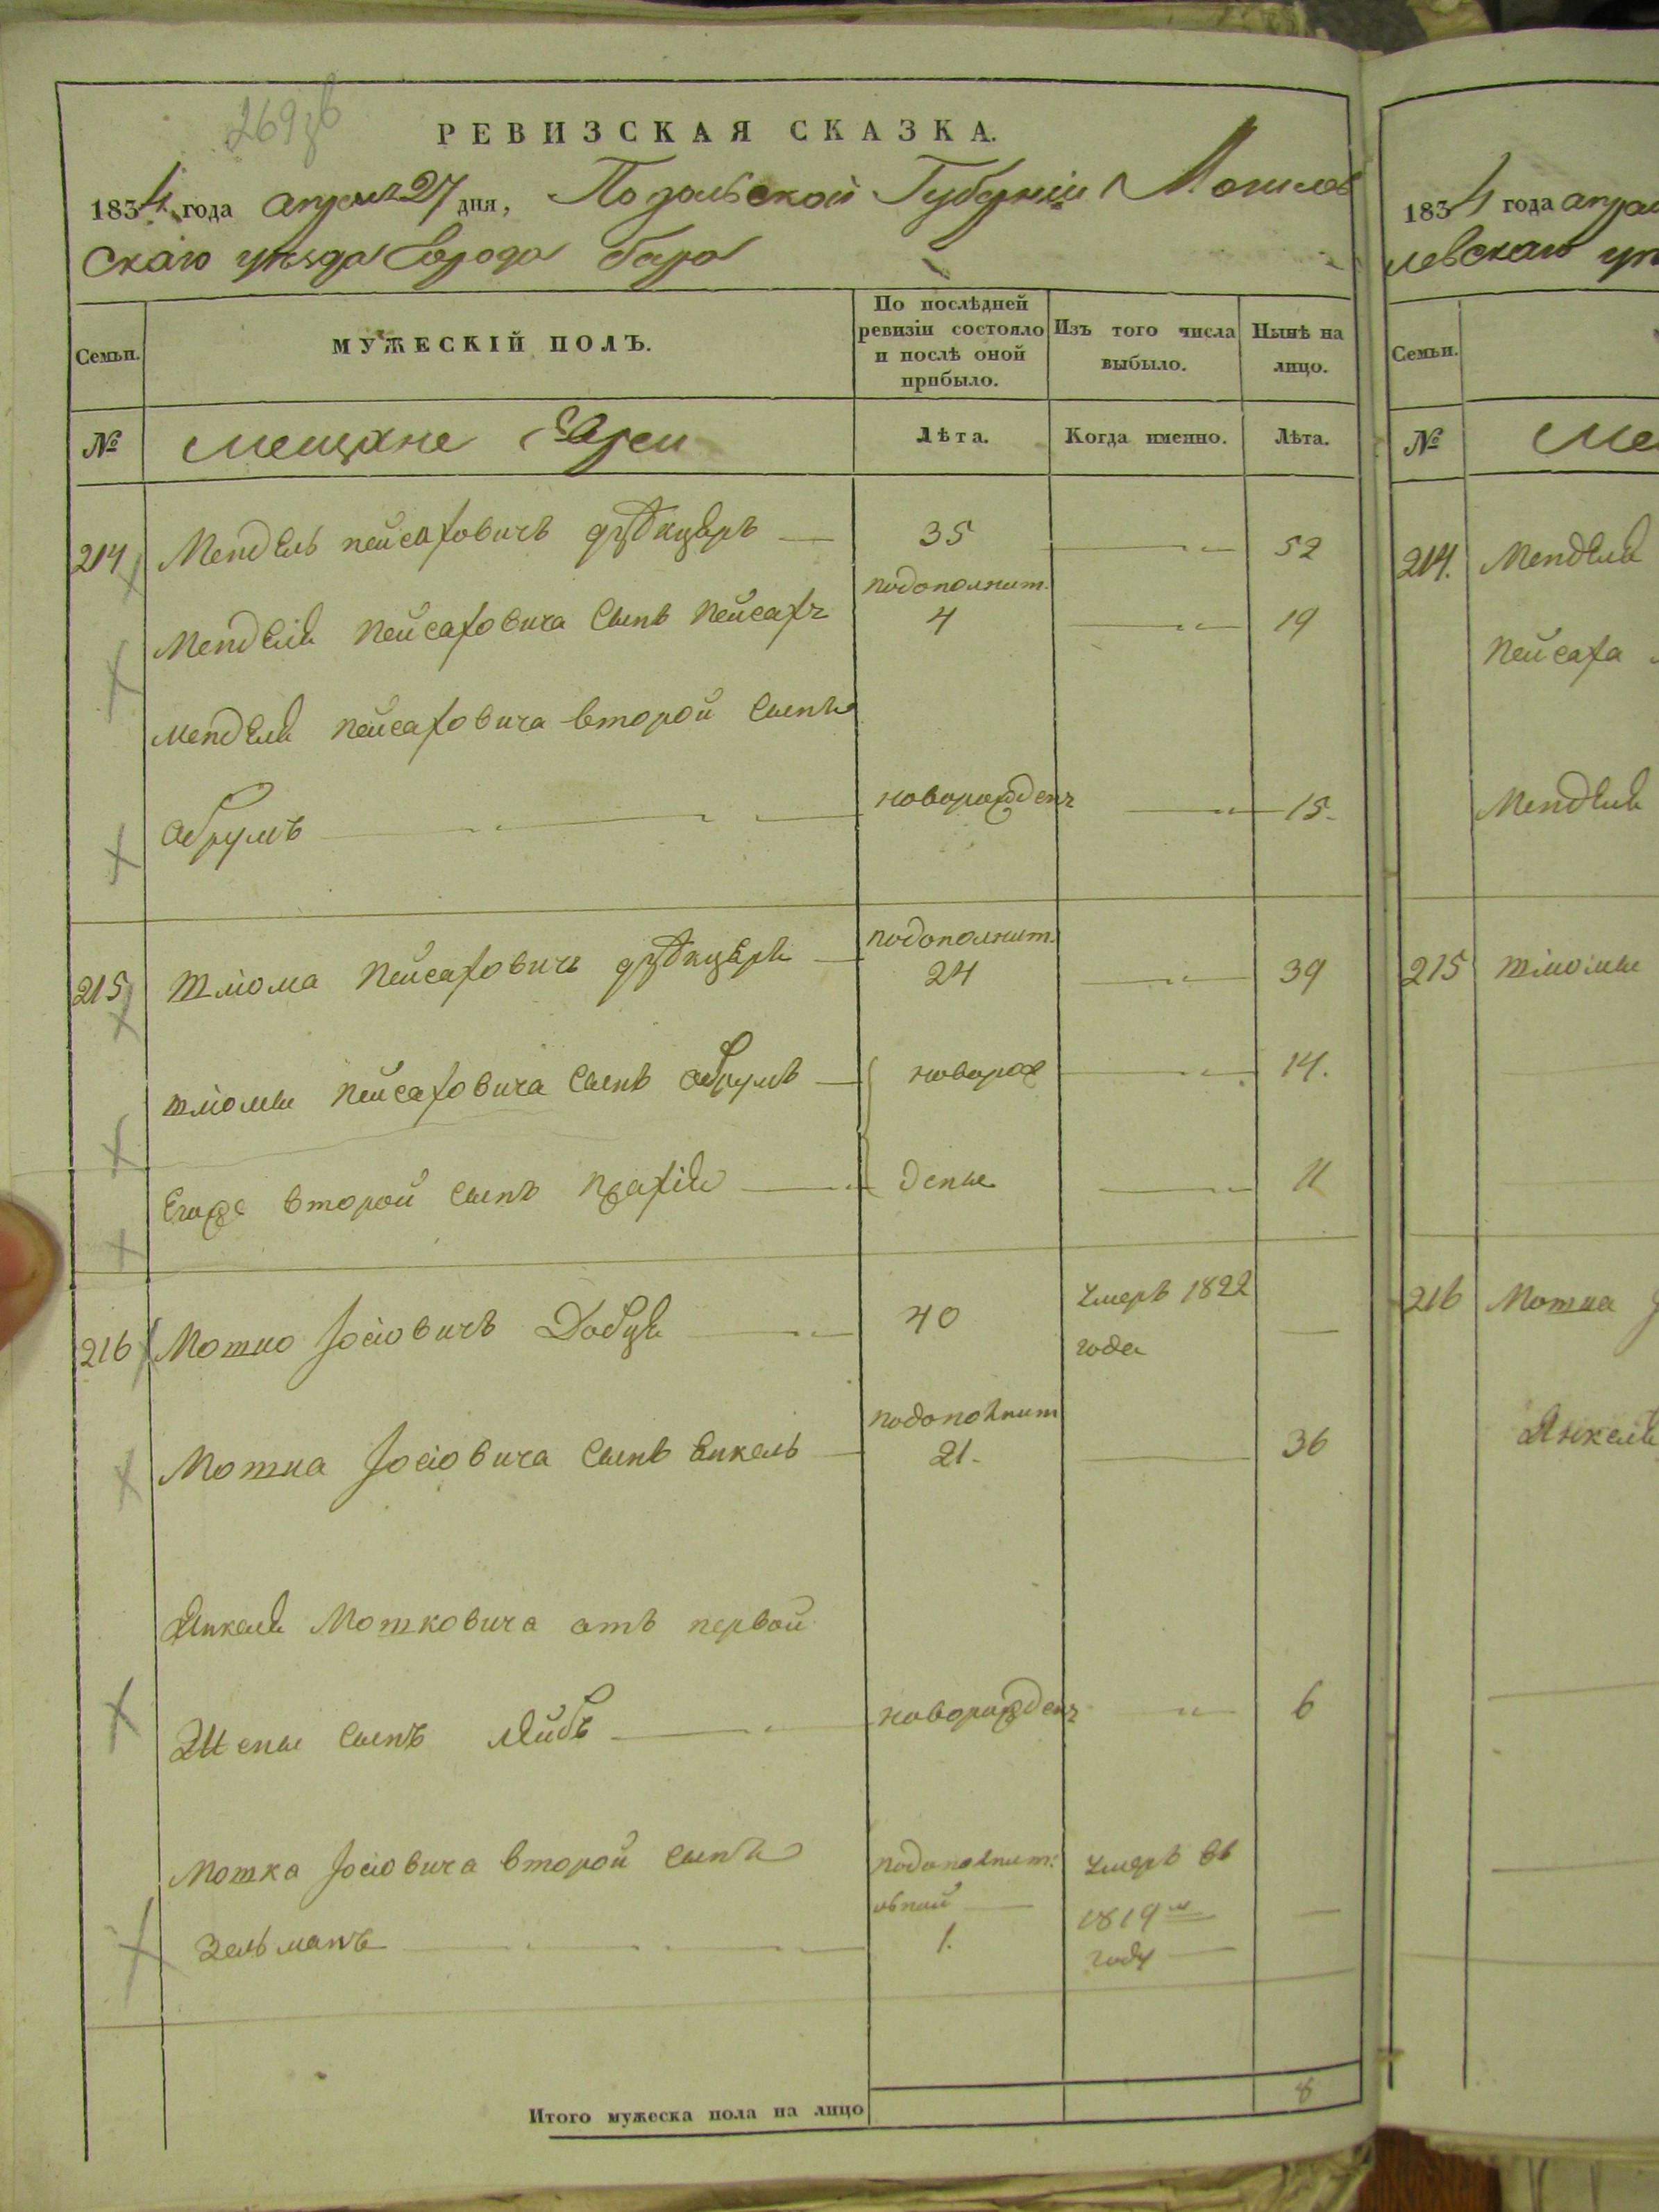 269 зв
РЕВИЗСКАЯ СКАЗКА.
1834 года апреля 27 дня, Подольской Губерніи Могилев
скаго уѣзда города бара
Семьи.
МУЖЕСКІЙ ПОЛЪ.
По послѣдней ревизіи состояло и послѣ оной прибыло.
Изъ того числа выбыло.
Нынѣ на лицо.
№ мещане Евреи Лѣта. Когда именно. Лѣта.
214 Мендель пейсаховичъ 35 52
подополнит.
Менделя Пейсаховича сынъ Пейсахъ 4 19
Менделя Пейсаховича второй сынъ
абрумъ новорожденъ 15
215 шліома Пейсаховичъ подополнит. 24 39
шліомы Пейсаховича сынъ абрумъ новорож 14.
Егоже второй сынъ дены 11
216 Мошко Іосіовичъ 40 умеръ 1822
года
подополнит
Мошка Іосіовича сынъ Енкель 21. 36
Янкеля Мошковича отъ первой
Жены сынъ Лейбъ новорожденъ 6
Мошка Іосіовича второй сынъ подополнит: умеръ въ
ьной 1819м
Зельманъ 1. году
Итого мужеска пола на лицо 8
1834 года апрел
левскаго уѣ
Семьи.
№ Ме
214. Менделя
Пейсаха
Менделя
215 шліомы
216 Мошка
Янкеля